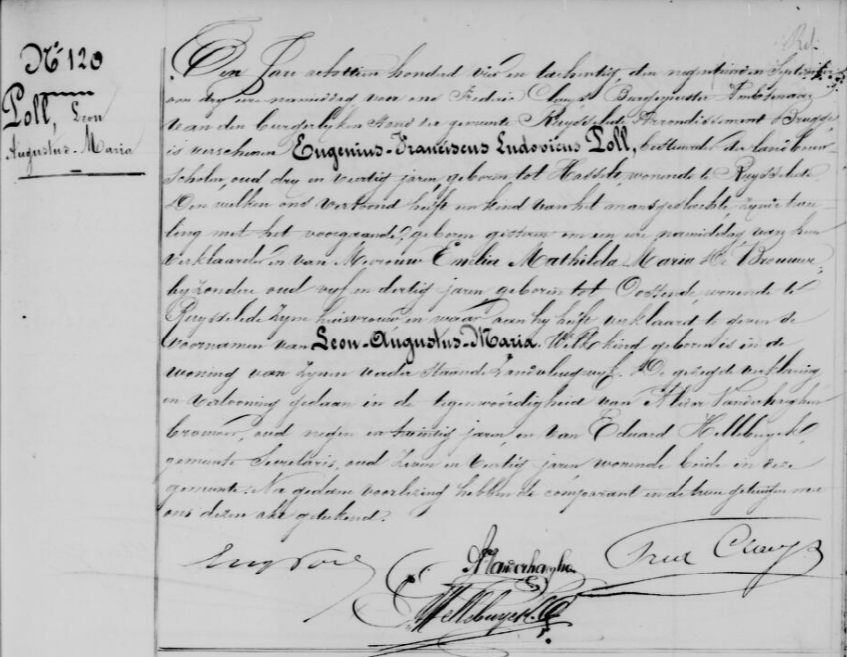 Nr 120
Poll, Leon
Augustus-Maria
Den Jare achttien honderd vier en tachentig, den negentienden September
om dry ure namiddag voor ons Frederic Claeys Burgemeester Ambtenaar
van den burgerlyken Stand der gemeente Ruysselede Arrondissement Brugge
is verschenen Eugenius-Franciscus Ludovicus Poll, bestuurder der landbouw
scholen, oud dry en veertig jaren geboren tot Hasselt, wonende te Ruysselede
Den welken ons vertoond heeft een kind van het mansgeslachte, zynde twee
ling met het voorgaande, geboren gisteren om een ure namiddag van hem
verklaarder en van Mevrouw Emelia Mathilda Maria De Brouwer,
byzondere oud vyf en dertig jaren geboren tot Oostende, wonende te
Ruysselede zyne huisvrouw en waar aan hy heeft verklaard te geven de
voornamen van Leon-Augustus-Maria. Welk kind geboren is in de
woning van zynen vader staande Zandvleugwyk. De gezegde verklaring
en vertooning gedaan in de tegenwoordigheid van Vanderhaeghen
brouwer, oud negen en twintig jaren, en van Eduard Hellebuyck,
gemeente Secretaris, oud zeven en veertig jaren wonende beide in deze
gemeente. Na gedane voorlezing hebben de comparant en de twee getuigen met
ons dezen akt geteekend.
Eug Poll Vanderhaeghen Fred Claeys
Hellebuyck